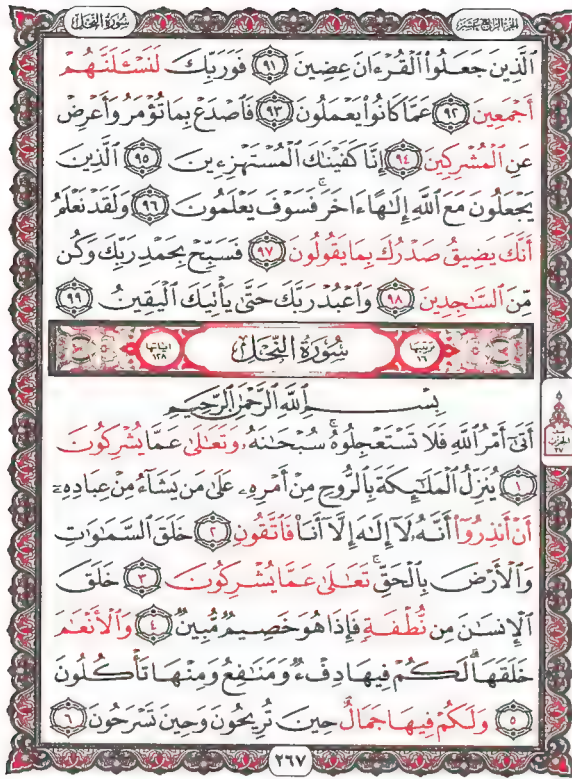 سُورَةُ النَّحْلِ
الجزء الرابع عشر
ٱلَّذِينَ جَعَلُوا۟ ٱلْقُرْءَانَ عِضِينَ ٩١ فَوَرَبِّكَ لَنَسْـَٔلَنَّهُمْ
أَجْمَعِينَ ٩٢ عَمَّا كَانُوا۟ يَعْمَلُونَ ٩٣ فَٱصْدَعْ بِمَا تُؤْمَرُ وَأَعْرِضْ
عَنِ ٱلْمُشْرِكِينَ ٩٤ إِنَّا كَفَيْنَٰكَ ٱلْمُسْتَهْزِءِينَ ٩٥ ٱلَّذِينَ
يَجْعَلُونَ مَعَ ٱللَّهِ إِلَٰهًا ءَاخَرَ ۚ فَسَوْفَ يَعْلَمُونَ ٩٦ وَلَقَدْ نَعْلَمُ
أَنَّكَ يَضِيقُ صَدْرُكَ بِمَا يَقُولُونَ ٩٧ فَسَبِّحْ بِحَمْدِ رَبِّكَ وَكُن
مِّنَ ٱلسَّٰجِدِينَ ٩٨ وَٱعْبُدْ رَبَّكَ حَتَّىٰ يَأْتِيَكَ ٱلْيَقِينُ ٩٩
ترتيبها ١٦ سُورَةُ النَّحْلِ آياتها ١٢٨
بِسْمِ ٱللَّهِ ٱلرَّحْمَٰنِ ٱلرَّحِيمِ
أَتَىٰٓ أَمْرُ ٱللَّهِ فَلَا تَسْتَعْجِلُوهُ ۚ سُبْحَٰنَهُۥ وَتَعَٰلَىٰ عَمَّا يُشْرِكُونَ
١ يُنَزِّلُ ٱلْمَلَٰٓئِكَةَ بِٱلرُّوحِ مِنْ أَمْرِهِۦ عَلَىٰ مَن يَشَآءُ مِنْ عِبَادِهِۦٓ
أَنْ أَنذِرُوٓا۟ أَنَّهُۥ لَآ إِلَٰهَ إِلَّآ أَنَا۠ فَٱتَّقُونِ ٢ خَلَقَ ٱلسَّمَٰوَٰتِ
وَٱلْأَرْضَ بِٱلْحَقِّ ۚ تَعَٰلَىٰ عَمَّا يُشْرِكُونَ ٣ خَلَقَ
ٱلْإِنسَٰنَ مِن نُّطْفَةٍ فَإِذَا هُوَ خَصِيمٌ مُّبِينٌ ٤ وَٱلْأَنْعَٰمَ
خَلَقَهَا ۗ لَكُمْ فِيهَا دِفْءٌ وَمَنَٰفِعُ وَمِنْهَا تَأْكُلُونَ
٥ وَلَكُمْ فِيهَا جَمَالٌ حِينَ تُرِيحُونَ وَحِينَ تَسْرَحُونَ ٦
الحزب
٢٧
٢٦٧